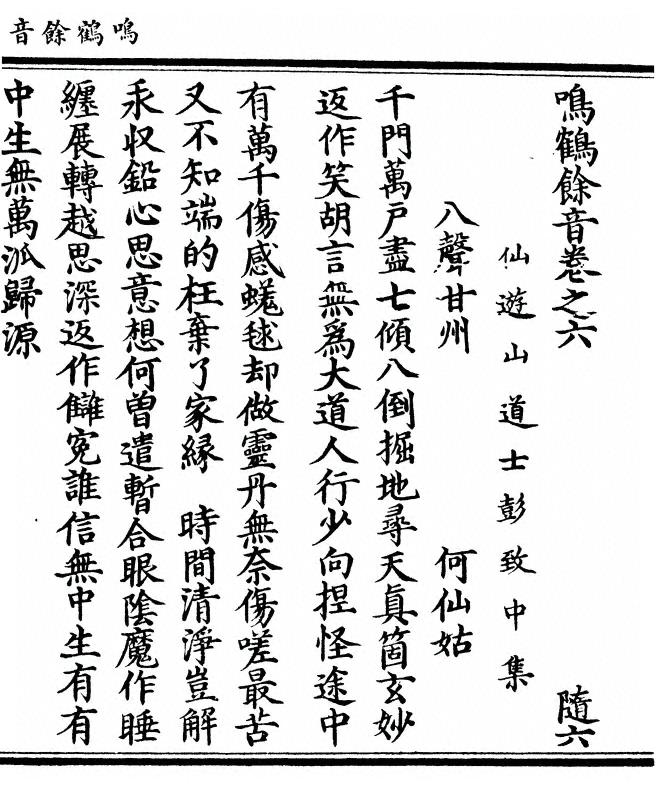 鳴鶴餘音
鳴鶴餘音卷之六 隨六
仙遊山道士彭致中集
八聲甘州 何仙姑
千門萬戶盡七傾八倒掘地尋天真箇玄妙
返作笑胡言無爲大道人行少向揑怪途中
有萬千傷感蠛毬却做靈丹無奈傷嗟最苦
又不知端的枉棄了家緣 時間清淨豈解
汞收鉛心思意想何曾遣暫合眼陰魔作睡
纏展轉越思深返作讎冤誰信無中生有有
中生無萬派歸源